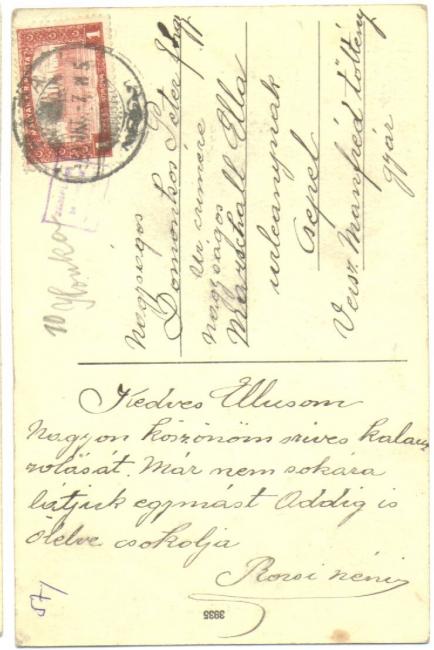 Nagyságos
Domonkos Péter főjgy
Úr címére
nagyságos
Marschall Ella
urleánynak
Csepel
Veisz Manfréd töltény
gyár
10
Ilonka
Kedves Ellusom
Nagyon köszönöm szives kalau
zolását. Már nem sokára
látjuk egymást Addig is
ölelve csokolja
Rozsi néni
57/
3935